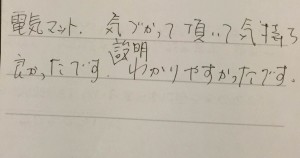 電気マット、気づかって頂いて気持ち
良かったです 説明 わかりやすかったです。